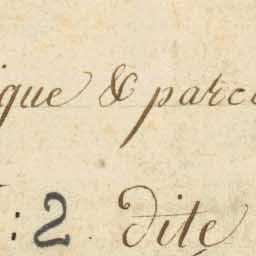 ique & parc
: 2. dite